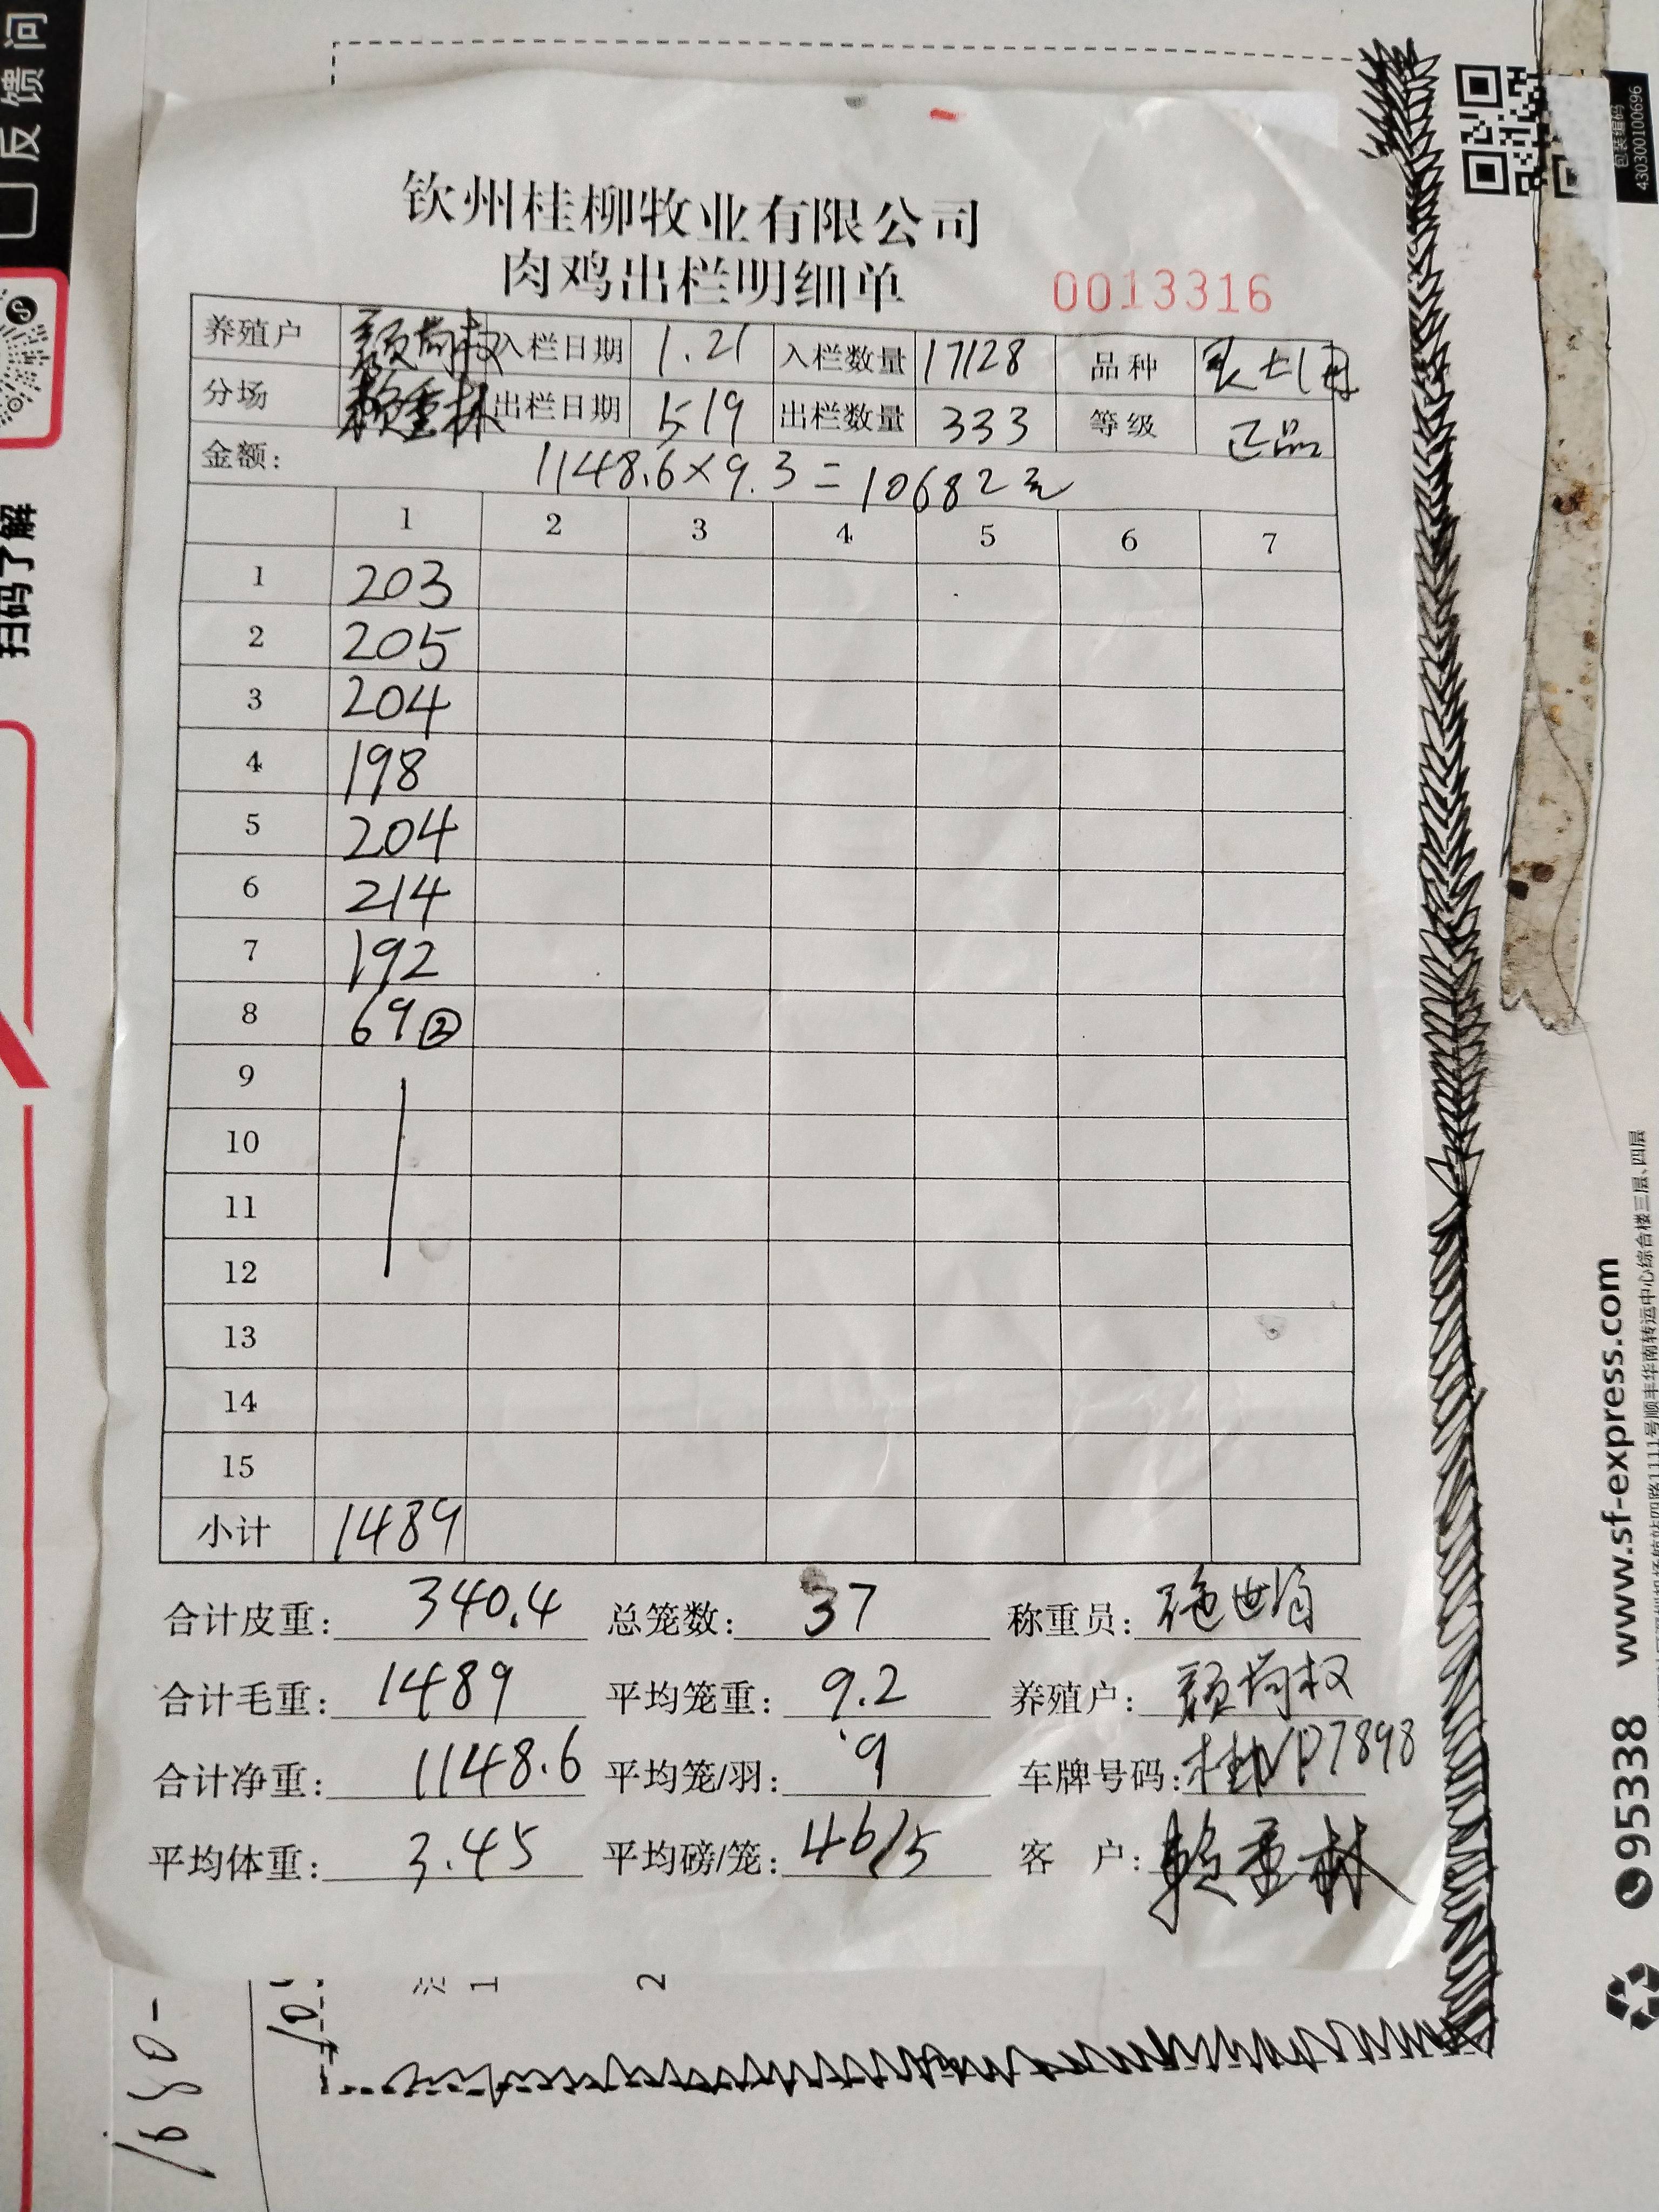 钦州桂柳牧业有限公司
肉鸡出栏明细单
0013316
养殖户 颜尚权 入栏日期 1.21 入栏数量 17128 品种
分场 赖重林 出栏日期 5.19 出栏数量 333 等级 正品
金额: 1148.6×9.3=10682元
1 2 3 4 5 6 7
1 203
2 205
3 204
4 198
5 204
6 214
7 192
8 69②
9
10
11
12
13
14
15
小计 1489
合计皮重: 340.4 总笼数: 37 称重员:
合计毛重: 1489 平均笼重: 9.2 养殖户: 颜尚权
合计净重: 1148.6 平均笼/羽: 9 车牌号码: 桂NP7898
平均体重: 3.45 平均磅/笼: 46/5 客 户: 赖重林
反馈问
扫码了解
包装编码
43030010069​6
www.sf-express.com
95338
1
2
1650-